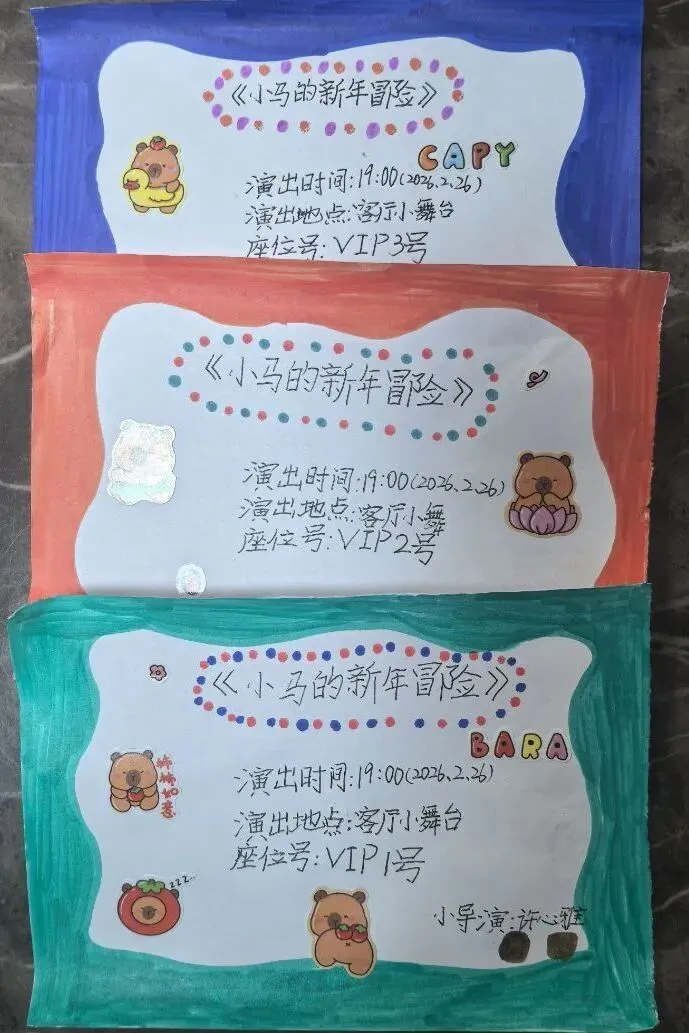 《小马的新年冒险》
CAPY
演出时间:19:00(2026.2.26)
演出地点:客厅小舞台
座位号:VIP3号
《小马的新年冒险》
演出时间:19:00(2026.2.26)
演出地点:客厅小舞
座位号:VIP2号
《小马的新年冒险》
BARA
演出时间:19:00(2026.2.26)
柿柿如意
演出地点:客厅小舞台
座位号:VIP1号
zzz...
小导演:许心雅